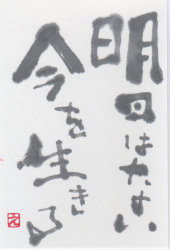 明日はない
今を生きる